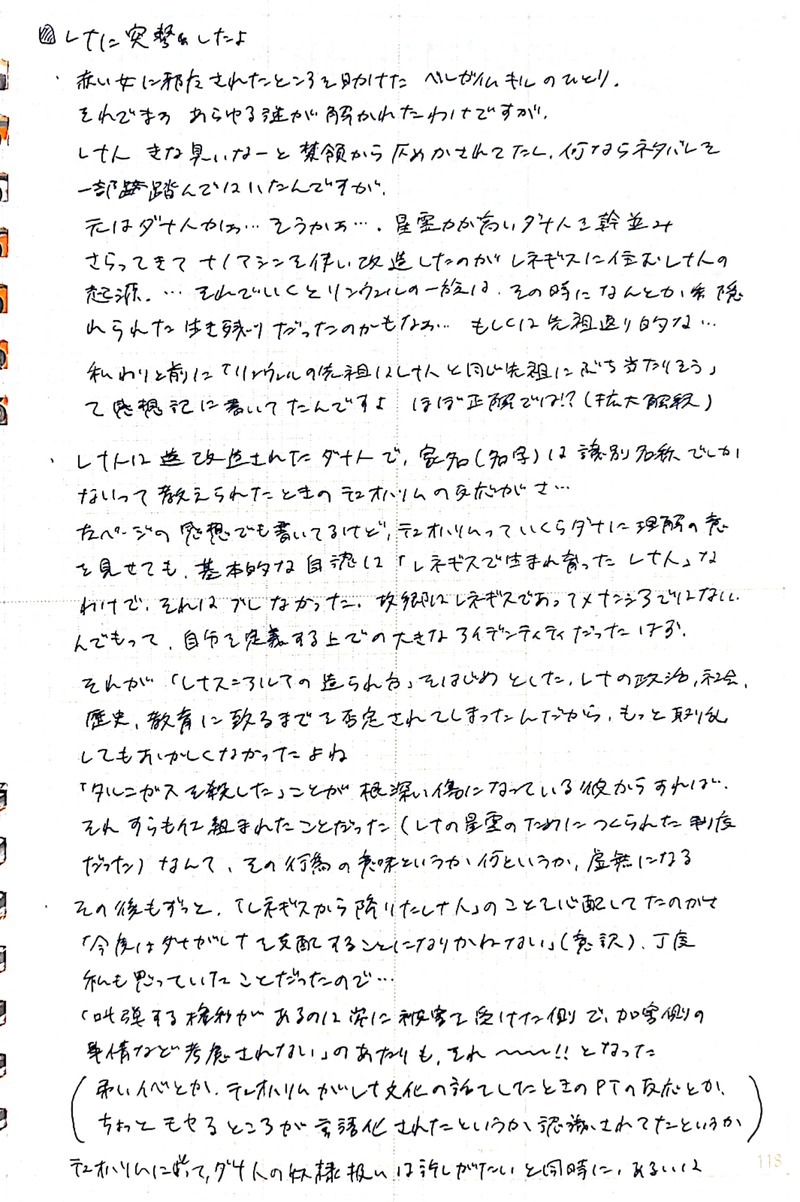 レナに突撃したよ
・赤い女に邪魔されたところを助けた ヘルガイムキルのひとり。
それでまぁ あらゆる謎が解かれたわけですが、
レナ人 きな臭いなーと禁領から仄めかされてたし、何ならネタバレを
一部踏んではいたんですが。
元はダナ人かぁ… そうかぁ…。星霊力が高いダナ人を幹並み
さらってきて ナノマシンを使い改造したのがレネギスに住むレナ人の
起源。… それでいくとリンウェルの一族は、その時になんとか
れられた生き残りだったのかもなぁ… もしくは先祖返り的な…
私わりと前に「リンウェルの先祖はレナ人と同じ先祖にぶち当たりそう」
て感想記に書いてたんですよ ほぼ正解では!?(拡大解釈)
・レナ人は 改造されたダナ人で、家名(名字)は識別名称でしか
ないって教えられたときのテュオハリムの反応がさ…
左ページの感想でも書いてるけど、テュオハリムっていくらダナに理解の意
を見せても、基本的な自認は「レネギスで生まれ育ったレナ人」な
わけで、それはブレなかった。故郷はレネギスであってメナンシアではない。
んでもって、自分を定義する上での大きなアイデンティティだったはず。
それが「レナス=アルマの造られ方」をはじめとした、レナの政治、社会、
歴史、教育に至るまでを否定されてしまったんだから、もっと取り乱
してもおかしくなかったよね
「タルニガスを殺した」ことが 根深い傷になっている彼からすれば、
それすらも仕組まれたことだった(レナの星霊のためにつくられた制度
だった)なんて、その行為の意味というか何というか、虚無になる
・その後もずっと、「レネギスから降りたレナ人」のことを心配してたのがさ
「今度はダナがレナを支配することになりかねない」(意訳)、丁度
私も思っていたことだったので…
「叫弾する権利があるのは常に被害を受けた側で、加害側の
事情など考慮されない」のあたりも、それ〜〜〜!! となった
(弔いイベとか、テュオハリムがレナ文化の話をしたときのPTの反応とか、
ちょっとモヤるところが言語化されたというか、認識されてたというか)
テュオハリムに とって、ダナ人の奴隷扱いは許しがたいと同時に、あるいは
118